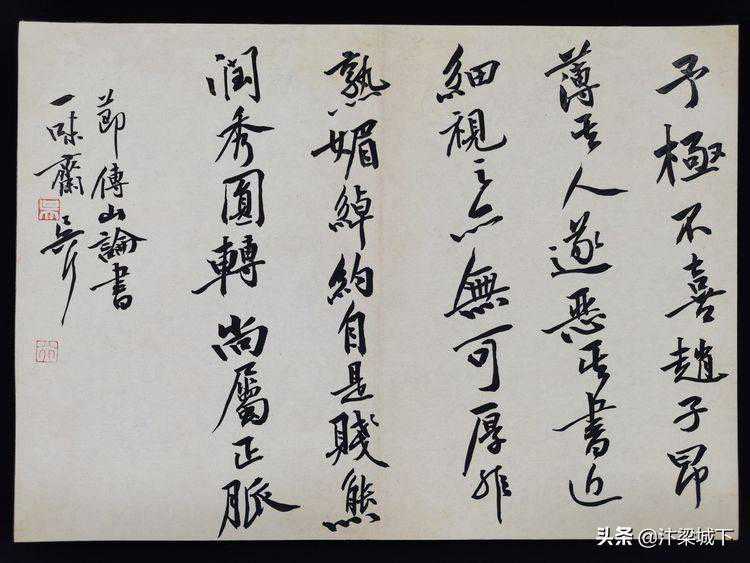 予極不喜趙子昂
薄其人遂惡其書近
細視之亦無可厚非
熟媚綽約自是賤態
潤秀圓轉尚屬正脈
節傅山論書
一味齋
头条 @汴梁城下